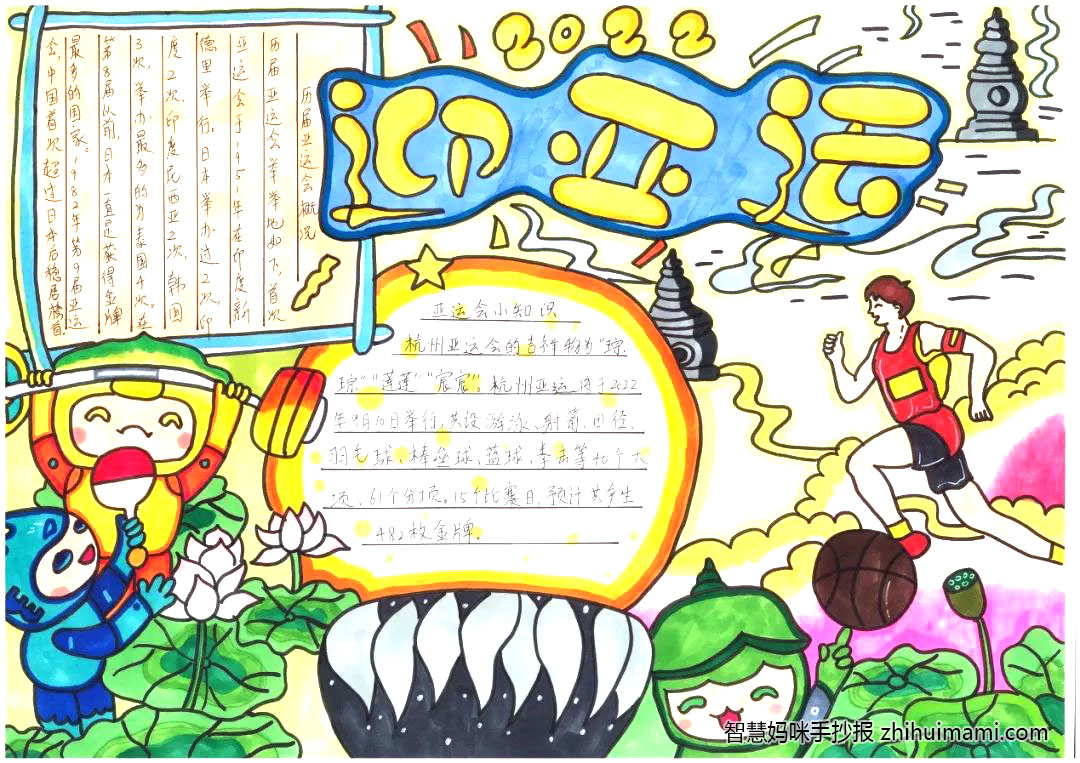 2022
迎亚运
历届亚运会概况
历届亚运会举举地如下,首次
亚运会于1951年在印度新
德里举行。日本举办过2次,印
度2次,印度尼西亚2次,韩国
3次,举办最多的为泰国4次。在
第8届以前,日本一直是获得金牌
最多的国家。1982年第9届亚运
会,中国首次超过日本后稳居榜首.
亚运会小知识
杭州亚运会的吉祥物为“琮
琮”“莲莲”“宸宸”。杭州亚运将于2022
年9月10日举行,共设游泳、射箭、田径、
羽毛球、棒垒球、蓝球、拳击等40个大
项、61个分项。15个比赛日,预计共产生
482枚金牌。
智慧妈咪手抄报 zhihuimami.com